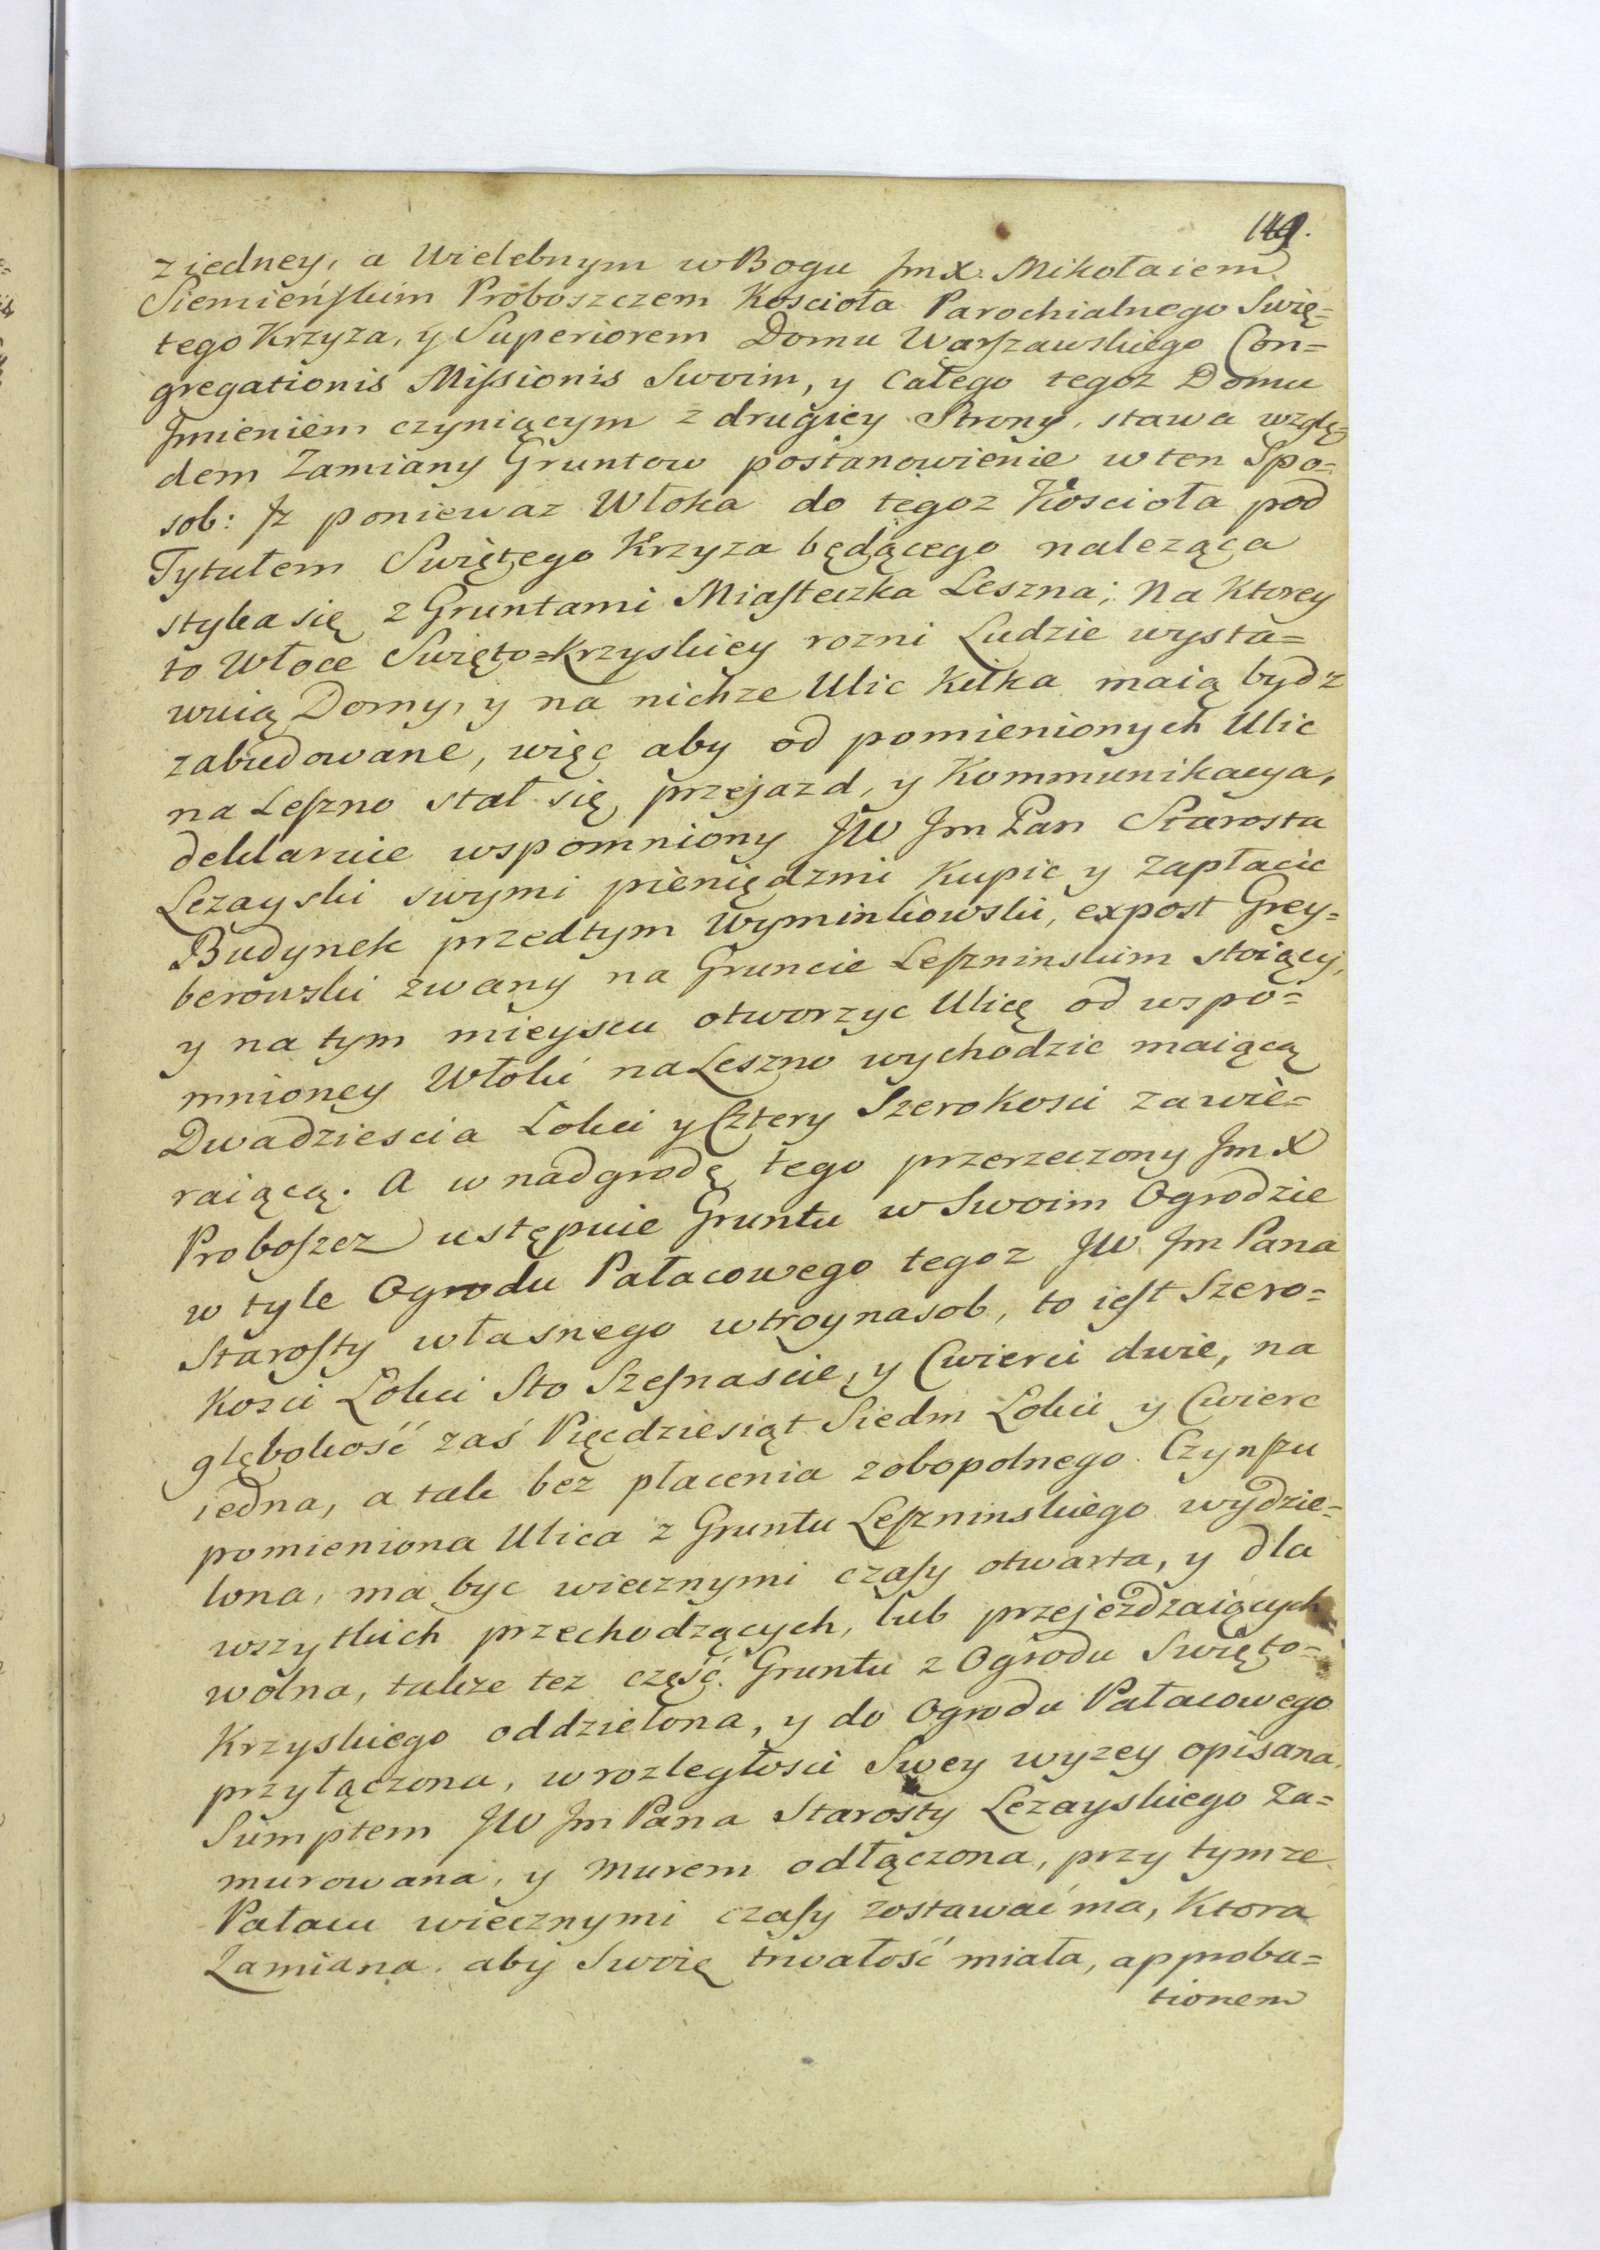 149.
z iedney, a Wielebnym w Bogu Jmx. Mikołaiem
Siemieńskim Proboszczem Koscioła Parochialnego Swię=
tego Krzyza, y Superiorem Domu Warszawskiego Con=
gregationis Missionis Swoim, y Całego tegoz Domu
Jmieniem czyniącym z drugiey Strony, stawa wzglę=
dem Zamiany Gruntow postanowienie w ten Spo=
sob: Jz poniewaz Włoka do tegoz Koscioła pod
Tytułem Swiętego Krzyza będącego naleząca
styka się z Gruntami Miasteczka Leszna; Na Ktorey
to Włoce Swięto=Krzyskiey rozni Ludzie wysta=
wuią Domy, y na nichze Ulic Kilka maią bydz
zabudowane, więc aby od pomienionych Ulic
na Leszno stał się przejazd, y Kommunikacya,
deklaruie wspomniony JW Jm Pan Starosta
Lezayski swymi pieniędzmi Kupic y Zapłacic
Budynek przedtym Wyminkowski, expost Grey=
berowski zwany na Gruncie Leszninskim stoiący,
y na tym mieyscu otworzyc Ulicę od wspo=
mnioney Włoki na Leszno wychodzic maiącą
Dwadziescia Łokci y Cztery Szerokosci zawie=
raiącą. A w nadgrodę tego przerzeczony Jm X
Proboszcz ustępuie Gruntu w Swoim Ogrodzie
w tyle Ogrodu Pałacowego tegoz JW. Jm Pana
Starosty własnego wtroynasob, to iest Szero=
Kosci Łokci Sto Szesnaście, y Cwierci dwie, na
głębokość zaś Pięcdziesiąt Siedm Łokci y Cwierc
iedna, a tak bez płacenia zobopolnego Czynszu
pomieniona Ulica z Gruntu Leszninskiego wydzie=
lona, ma byc wiecznymi czasy otwarta, y dla
wszytkich przechodzących, lub przejezdzaiących
wolna, takze tez część Gruntu z Ogrodu Swięto=
Krzyskiego oddzielona, y do Ogrodu Pałacowego
przyłączona, w rozległosci Swey wyzey opisana,
Sumptem JW Jm Pana Starosty Lezayskiego Za=
murowana, y Murem odłączona, przy tymze
Pałacu wiecznymi czasy zostawać ma, Ktora
Zamiana aby Swoię trwałość miała, approba=
tionem